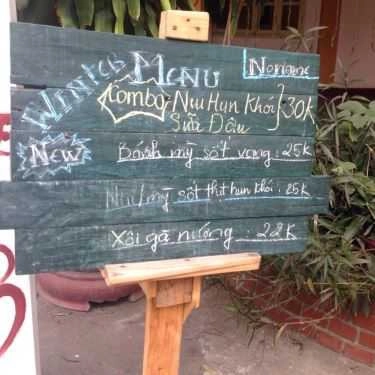 Winter Menu
Noname
Combo Nui Hun Khói } 30k
Sữa Đậu
New Bánh mỳ sốt vang : 25K
Nui/mỳ sốt thịt hun khói : 25K
Xôi gà nướng : 22K